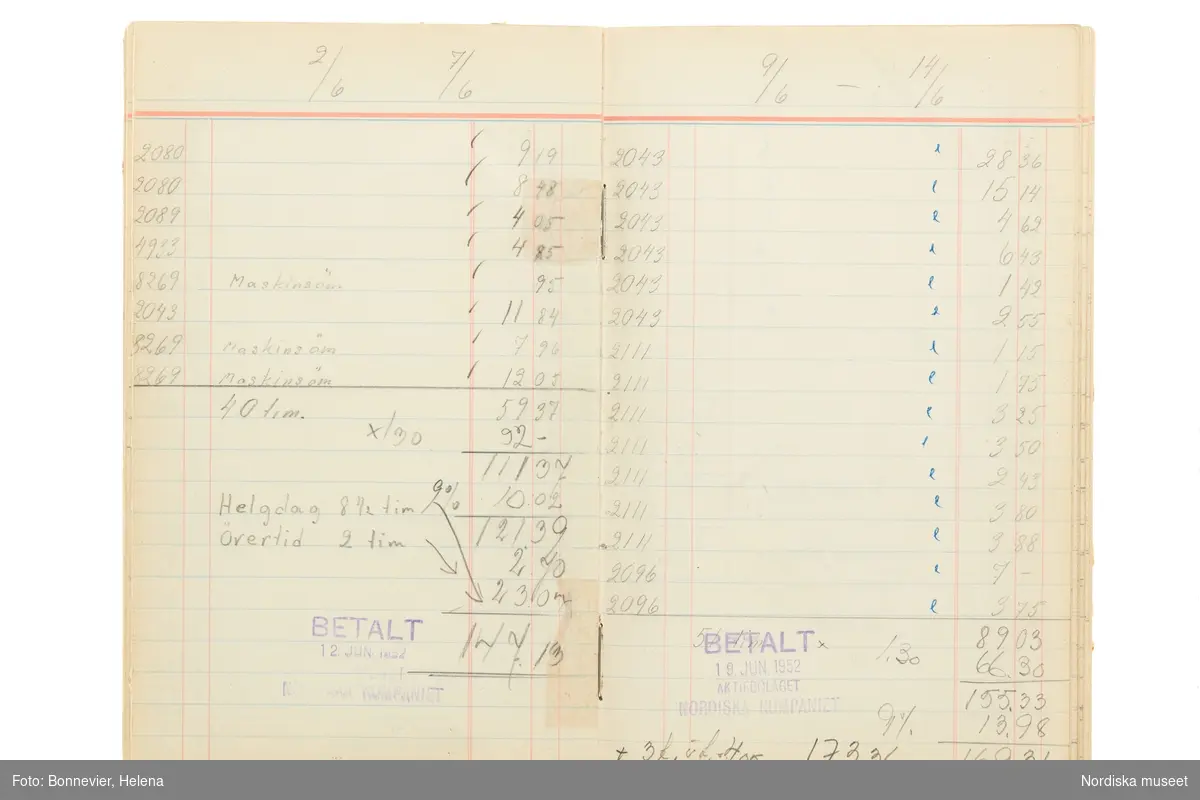 2/6 7/6
2080 9 19
2080 8 48
2089 4 05
4933 4 85
8269 Maskinsöm 95
2043 11 84
8269 Maskinsöm 7 96
8269 Maskinsöm 12 05
40 tim. 59 37
x 1/30 52 -
111 37
9% 10.02
Helgdag 8 1/2 tim
121.39
Övertid 2 tim
2.70
23.04
147.13
BETALT
12. JUN. 1952
KOMPANIET
9/6 - 14/6
2043 28 36
2043 15 14
2043 4 62
2043 6 43
2043 1 42
2043 2 55
2111 1 15
2111 1 75
2111 3 25
2111 3 50
2111 2 43
2111 3 80
2111 3 88
2096 7 -
2096 3 75
89 03
x 1.30 66.30
BETALT
19. JUN 1952
AKTIEBOLAGET
NORDISKA KOMPANIET
155.33
9% 13.98
169 31
Foto: Bonnevier, Helena
Nordiska museet